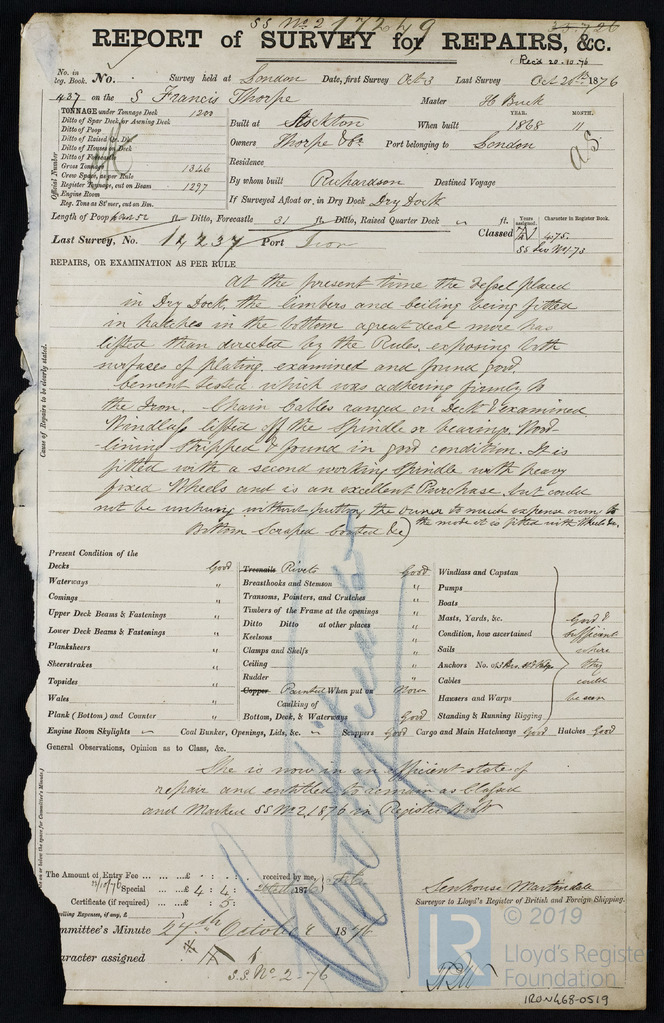 SS No 2 17249
REPORT of SURVEY for REPAIRS, &c.
Rec'd 20.10.76
No. in Reg. Book. No. Survey held at London Date, first Survey Oct 3 Last Survey Oct 20th 1876
437 on the S Francis Thorpe Master H Buck
TONNAGE under Tonnage Deck 1200
Ditto of Spar Deck or Awning Deck
Ditto of Poop
Ditto of Raised Qr. Dk.
Ditto of Houses on Deck
Ditto of Forecastle
Gross Tonnage 1346
Crew Space, as per Rule
Register Tonnage, cut on Beam 1297
Engine Room
Reg. Tons as St'mer, cut on Bm.
Official Number
YEAR. MONTH.
Built at Stockton When built 1868 11
Owners Thorpe & Co. Port belonging to London
Residence
By whom built Richardson Destined Voyage
If Surveyed Afloat or in Dry Dock Dry Dock
Length of Poop ft. Ditto, Forecastle 31 ft. Ditto, Raised Quarter Deck " ft.
Years assigned. Character in Register Book.
Classed 4.75
Last Survey, No. 12,237 Port Iron
REPAIRS, OR EXAMINATION AS PER RULE
Cause of Repairs to be clearly stated.
At the present time the Vessel placed
in Dry Dock, the limbers and ceiling being fitted
in hatches in the bottom a great deal more has
lifted than directed by the Rules, exposing both
surfaces of plating, examined and found good.
Cement tested which was adhering firmly to
the Iron. Chain Cables ranged on Deck & examined.
Windlass lifted off the Spindle or bearings. Wood
lining stripped & found in good condition. It is
fitted with a second working Spindle with heavy
fixed Wheels and is an excellent Purchase, but could
not be unhung without putting the owner to much expense owing to
the mode it is fitted with Wheels &c.
Bottom Scraped coated &c)
Present Condition of the
Decks Good
Waterways "
Comings "
Upper Deck Beams & Fastenings "
Lower Deck Beams & Fastenings "
Planksheers "
Sheerstrakes "
Topsides "
Wales "
Plank (Bottom) and Counter "
Treenails Rivets Good
Breasthooks and Stemson "
Transoms, Pointers, and Crutches "
Timbers of the Frame at the openings "
Ditto Ditto at other places "
Keelsons "
Clamps and Shelfs "
Ceiling "
Rudder "
Copper Painted When put on Now
Caulking of
Bottom, Deck, & Waterways Good
Windlass and Capstan
Pumps
Boats
Masts, Yards, &c. Good &
Condition, how ascertained Sufficient
Sails where
Anchors No. of they
Cables could
Hawsers and Warps be seen
Standing & Running Rigging
Engine Room Skylights " Coal Bunker, Openings, Lids, &c. " Scuppers Good Cargo and Main Hatchways Good Hatches Good
General Observations, Opinion as to Class, &c.
She is now in an efficient state of
repair and entitled to remain as Classed
and Marked SS No 2, 1876 in Register Book
on or below the space for Committee's Minute
The Amount of Entry Fee ... £ : : received by me,
Special ... £ 4 : 4 : 1876
Certificate (if required) ... £ : 5 :
Travelling Expenses, if any, £
Senhouse Martindale
Surveyor to Lloyd's Register of British and Foreign Shipping.
Committee's Minute 24th October 1876
Character assigned
S.S. No 2-76
© 2019
LR
Lloyd's Register
Foundation
IRON468-0519